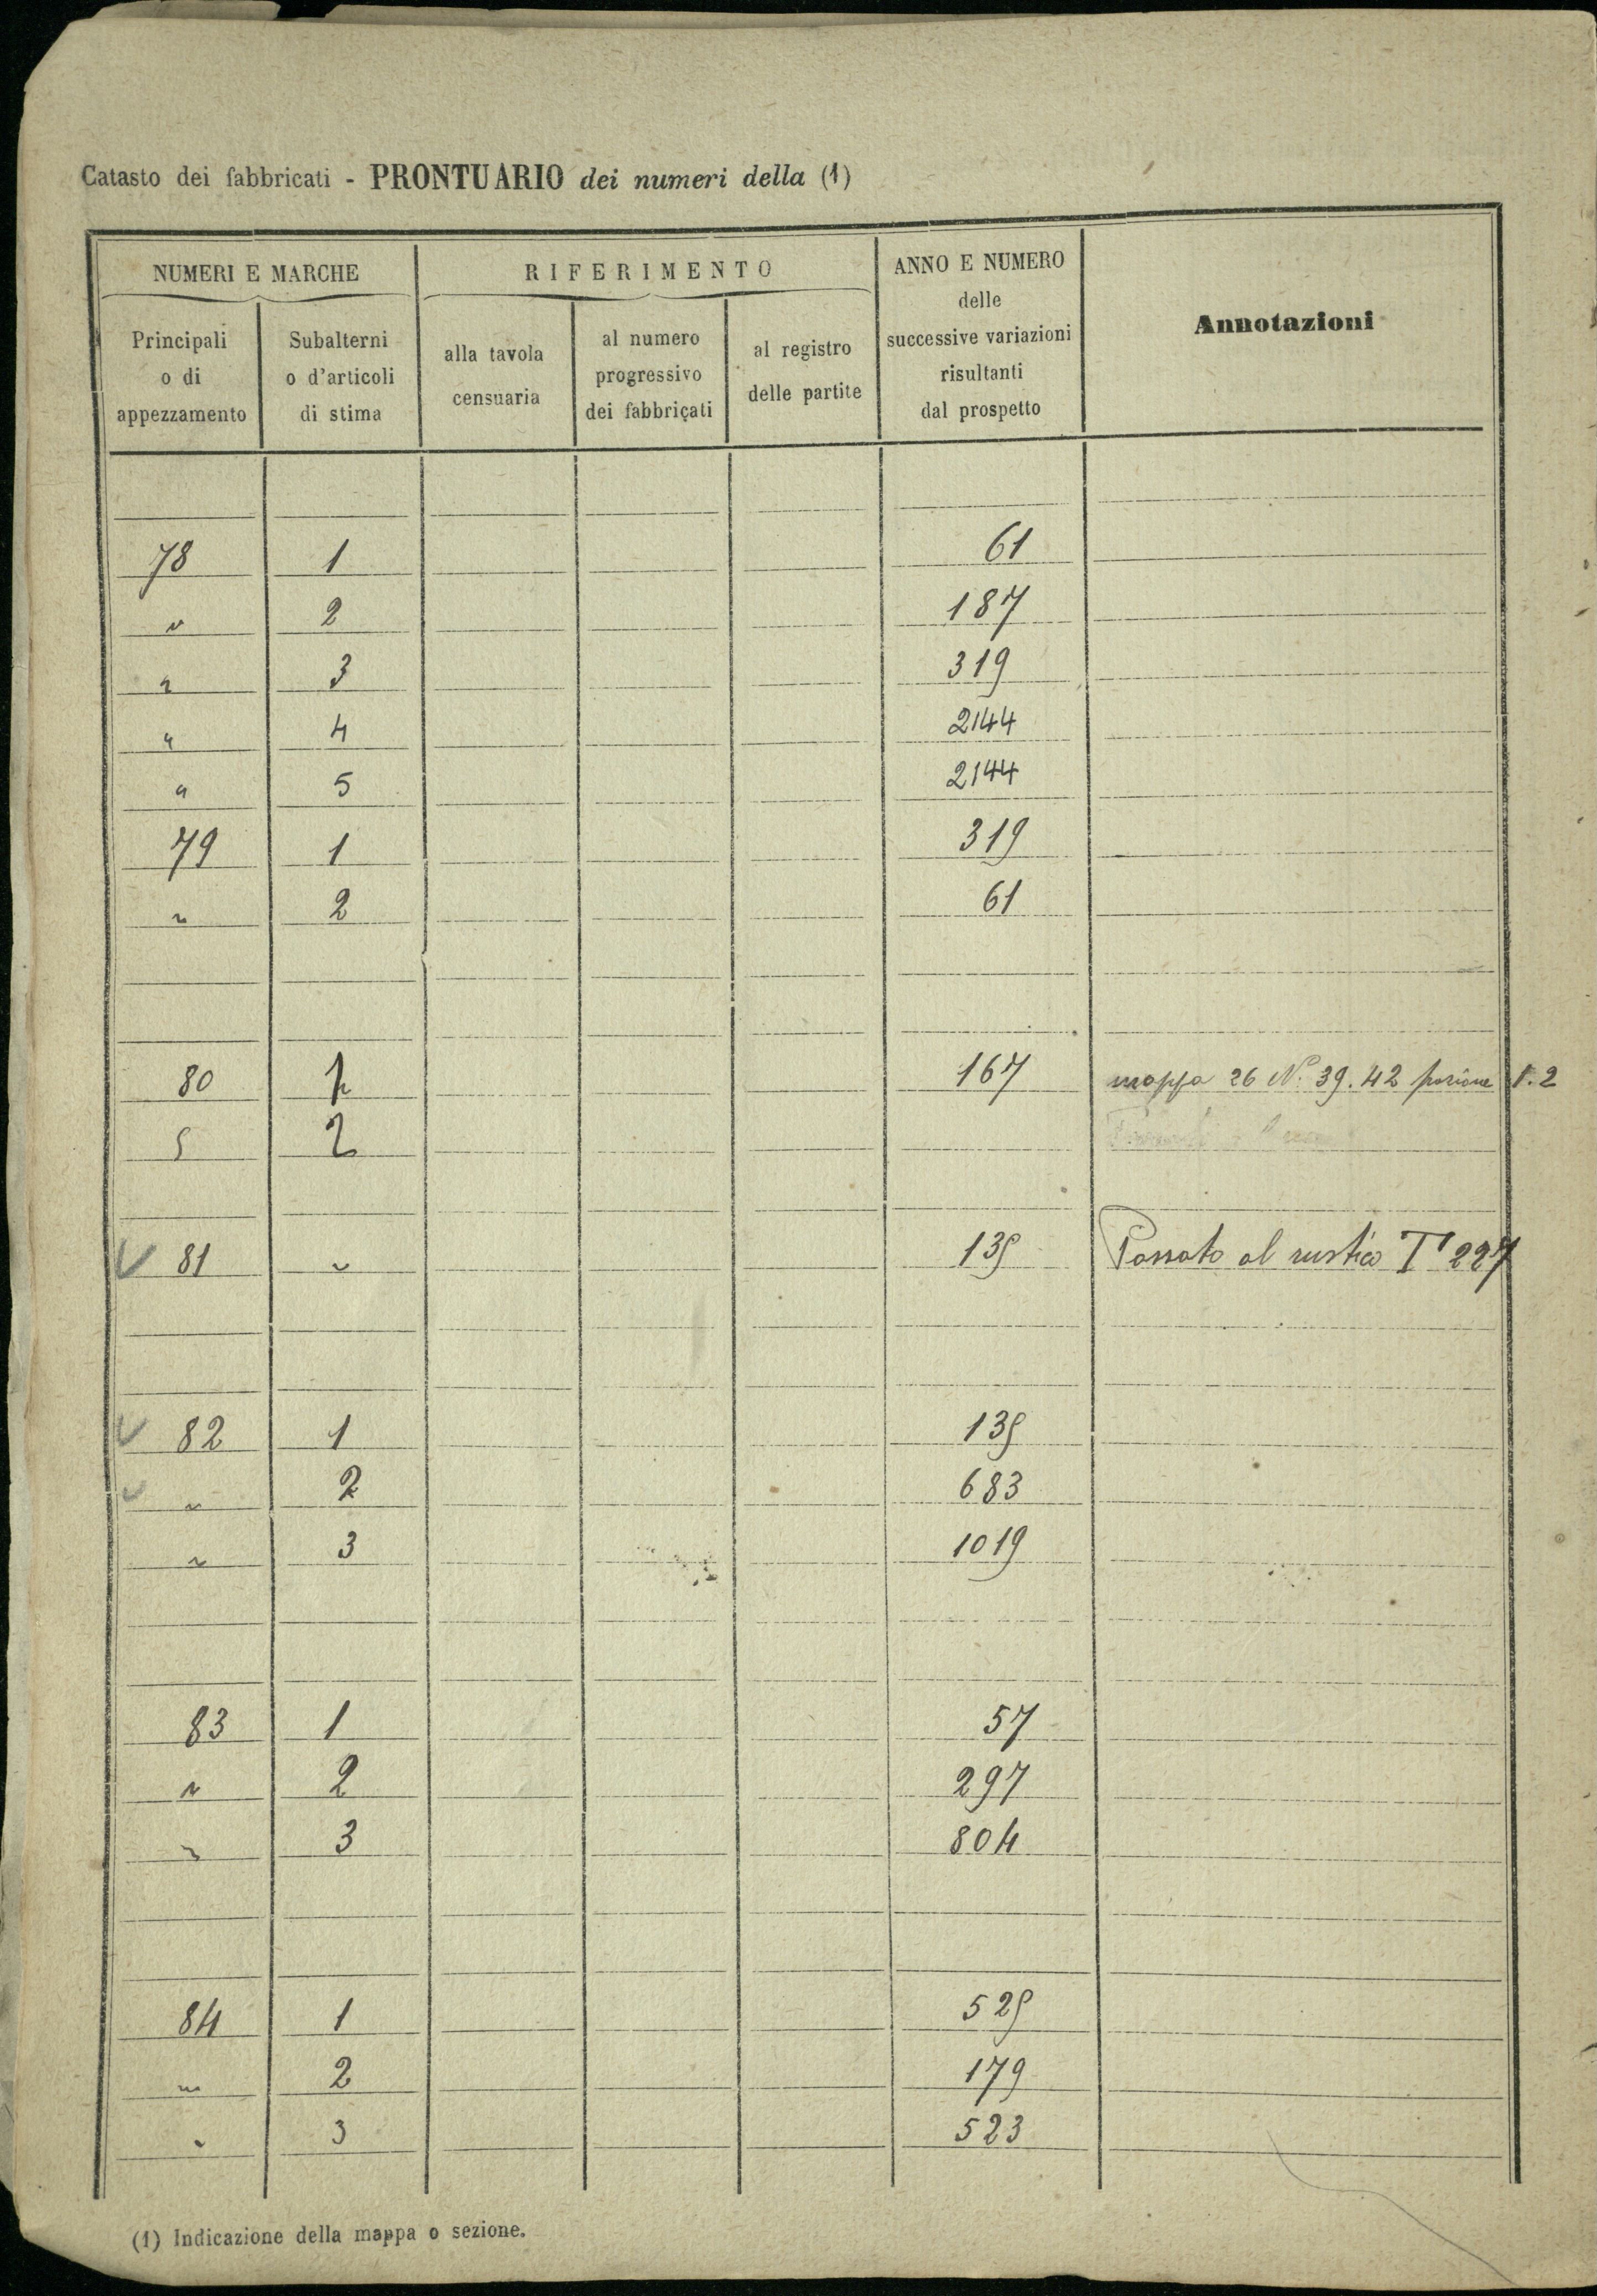 Catasto dei fabbricati - PRONTUARIO dei numeri della (1)
NUMERI E MARCHE
RIFERIMENTO
ANNO E NUMERO
delle
successive variazioni
risultanti
dal prospetto
Annotazioni
Principali
o di
appezzamento
Subalterni
o d'articoli
di stima
alla tavola
censuaria
al numero
progressivo
dei fabbricati
al registro
delle partite
78 1 61
" 2 187
" 3 319
" 4 2144
" 5 2144
79 1 319
" 2 61
80 1 167 mappa 26 N.° 39.42 porzione 1.2
2
81 " 135 Passato al rustico T 227
82 1 135
" 2 683
" 3 1019
83 1 57
" 2 297
" 3 804
84 1 525
" 2 179
" 3 523
(1) Indicazione della mappa o sezione.